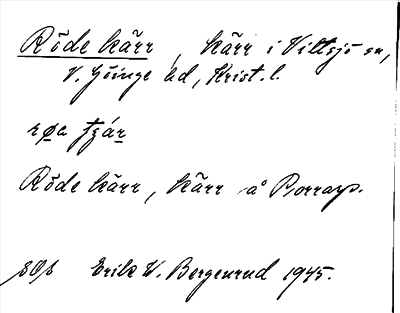 Röde kärr, kärr i Vittsjö sn,
V. Göinge hd, Krist. l.
røa tjár
Röde kärr, kärr å Borrarp.
Erik W. Bergenrud 1945.